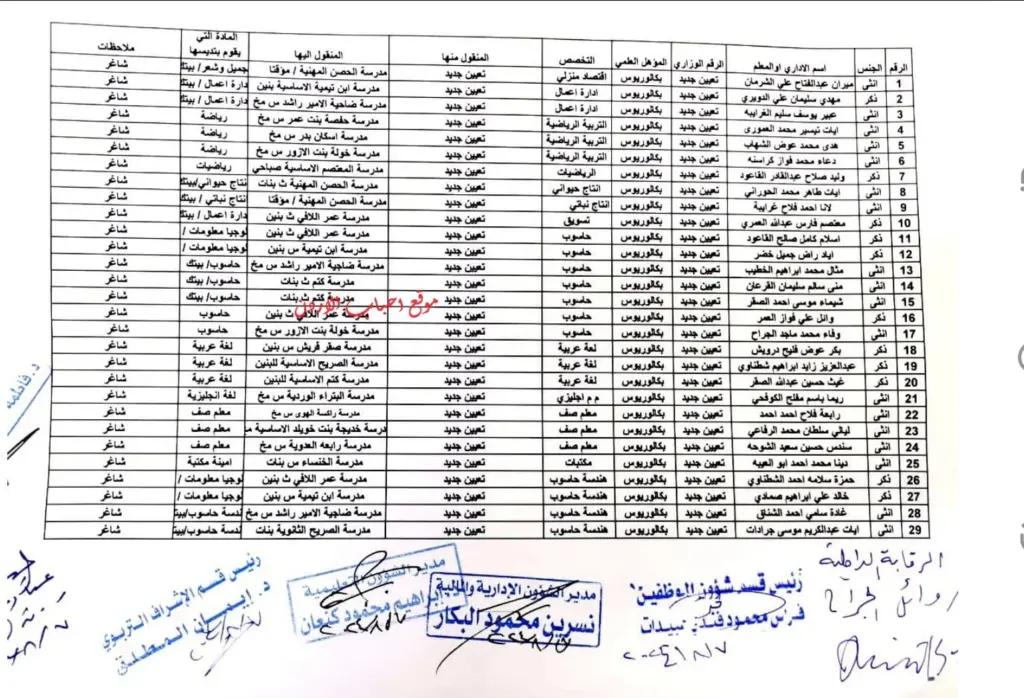 الرقم الجنس اسم الاداري اوالمعلم الرقم الوزاري المؤهل العلمي التخصص المنقول منها المنقول اليها المادة التي يقوم بتديسها ملاحظات
1 انثى ميران عبدالفتاح علي الشرمان تعيين جديد بكالوريوس اقتصاد منزلي تعيين جديد مدرسة الحصن المهنية / مؤقتا جميل وشعر/ بيتك شاغر
2 ذكر مهدي سليمان علي الدويري تعيين جديد بكالوريوس ادارة اعمال تعيين جديد مدرسة ابن تيمية الاساسية بنين دارة اعمال / بيتك شاغر
3 انثى عبير يوسف سليم الغرايبه تعيين جديد بكالوريوس ادارة اعمال تعيين جديد مدرسة ضاحية الامير راشد س مخ دارة اعمال / بيتك شاغر
4 انثى ايات تيسير محمد العمورى تعيين جديد بكالوريوس التربية الرياضية تعيين جديد مدرسة حفصة بنت عمر س مخ رياضة شاغر
5 انثى هدى محمد عوض الشهاب تعيين جديد بكالوريوس التربية الرياضية تعيين جديد مدرسة اسكان بدر س مخ رياضة شاغر
6 انثى دعاء محمد فواز كراسنه تعيين جديد بكالوريوس التربية الرياضية تعيين جديد مدرسة خولة بنت الازور س مخ رياضة شاغر
7 ذكر وليد صلاح عبدالقادر القاعود تعيين جديد بكالوريوس الرياضيات تعيين جديد مدرسة المعتصم الاساسية صباحي رياضيات شاغر
8 انثى ايات طاهر محمد الحوراني تعيين جديد بكالوريوس انتاج حيواني تعيين جديد مدرسة الحصن المهنية ث بنات نتاج حيواني/بيتك شاغر
9 انثى لانا احمد فلاح غرايبة تعيين جديد بكالوريوس انتاج نباتي تعيين جديد مدرسة الحصن المهنية / مؤقتا نتاج نباتي / بيتك شاغر
10 ذكر معتصم فارس عبدالله العمري تعيين جديد بكالوريوس تسويق تعيين جديد مدرسة عمر اللافي ث بنين دارة اعمال / بيتك شاغر
11 ذكر اسلام كامل صالح القاعود تعيين جديد بكالوريوس حاسوب تعيين جديد مدرسة عمر اللافي س بنين لوجيا معلومات / شاغر
12 ذكر اياد راض جميل خضر تعيين جديد بكالوريوس حاسوب تعيين جديد مدرسة ابن تيمية س بنين لوجيا معلومات / شاغر
13 انثى مثال محمد ابراهيم الخطيب تعيين جديد بكالوريوس حاسوب تعيين جديد مدرسة ضاحية الامير راشد س مخ حاسوب/ بيتك شاغر
14 انثى منى سالم سليمان القرعان تعيين جديد بكالوريوس حاسوب تعيين جديد مدرسة كتم ث بنات حاسوب/ بيتك شاغر
15 انثى شيماء موسى احمد الصقر تعيين جديد بكالوريوس حاسوب تعيين جديد مدرسة كتم ث بنات حاسوب/ بيتك شاغر
16 ذكر وائل علي فواز العمر تعيين جديد بكالوريوس حاسوب تعيين جديد مدرسة عمر اللافي ث بنين حاسوب شاغر
17 انثى وفاء محمد ماجد الجراح تعيين جديد بكالوريوس حاسوب تعيين جديد مدرسة خولة بنت الازور س مخ حاسوب شاغر
18 ذكر بكر عوض فليح درويش تعيين جديد بكالوريوس لغة عربية تعيين جديد مدرسة صقر قريش س بنين لغة عربية شاغر
19 ذكر عبدالعزيز زايد ابراهيم شطناوي تعيين جديد بكالوريوس لغة عربية تعيين جديد مدرسة الصريح الاساسية للبنين لغة عربية شاغر
20 ذكر غيث حسين عبدالله الصقر تعيين جديد بكالوريوس لغة عربية تعيين جديد مدرسة كتم الاساسية للبنين لغة عربية شاغر
21 انثى ريما باسم مفلح الكوفحي تعيين جديد بكالوريوس م م انجليزي تعيين جديد مدرسة البتراء الوردية س مخ لغة انجليزية شاغر
22 انثى رابعة فلاح احمد احمد تعيين جديد بكالوريوس معلم صف تعيين جديد مدرسة راكسة الهوى س مخ معلم صف شاغر
23 انثى ليالي سلطان محمد الرفاعي تعيين جديد بكالوريوس معلم صف تعيين جديد درسة خديجة بنت خويلد الاساسية م معلم صف شاغر
24 انثى سندس حسين سعيد الشوحه تعيين جديد بكالوريوس معلم صف تعيين جديد مدرسة رابعه العدوية س مخ معلم صف شاغر
25 انثى دينا محمد احمد ابو العيبه تعيين جديد بكالوريوس مكتبات تعيين جديد مدرسة الخنساء س بنات امينة مكتبة شاغر
26 ذكر حمزة سلامه احمد الشطناوي تعيين جديد بكالوريوس هندسة حاسوب تعيين جديد مدرسة عمر اللافي ث بنين لوجيا معلومات / شاغر
27 ذكر خالد علي ابراهيم صمادي تعيين جديد بكالوريوس هندسة حاسوب تعيين جديد مدرسة ابن تيمية س بنين لوجيا معلومات / شاغر
28 انثى غادة سامي احمد الشناق تعيين جديد بكالوريوس هندسة حاسوب تعيين جديد مدرسة ضاحية الامير راشد س مخ ندسة حاسوب/بيتك شاغر
29 انثى ايات عبدالكريم موسى جرادات تعيين جديد بكالوريوس هندسة حاسوب تعيين جديد مدرسة الصريح الثانوية بنات ندسة حاسوب/بيتك شاغر
الرقابة الداخلية
وائل الجراح
رئيس قسم شؤون الموظفين
فراس محمود عبيدات
مدير الشؤون الإدارية والمالية
نسرين محمود البكار
مدير الشؤون التعليمية
ابراهيم محمود كنعان
رئيس قسم الإشراف التربوي
د. إيمان